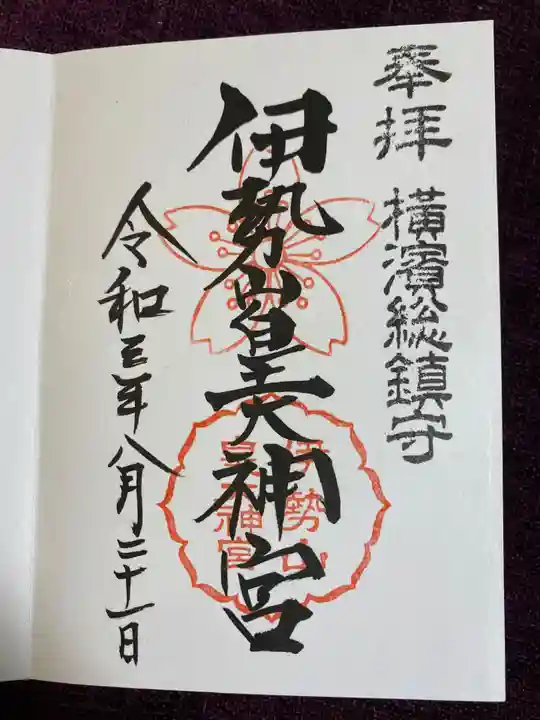 奉拝 横濱総鎮守
伊勢山皇大神宮
伊勢山
皇大神宮
令和三年八月二十一日